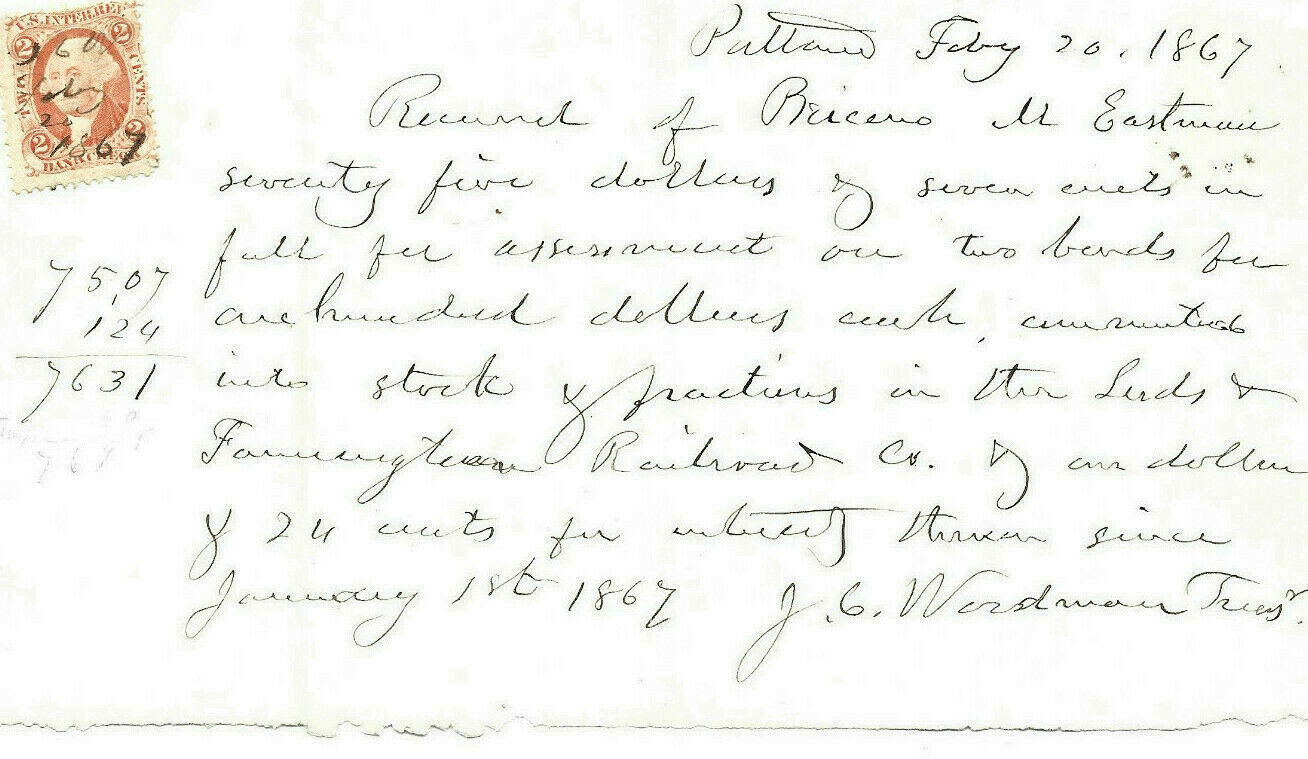 U.S. INTER. REV.
2 2
TWO CENTS
J C W
Feby
20
1867
2 2
BANK CHECK
Portland Feby 20. 1867
Received of Briceno M Eastman
seventy five dollars & seven cents in
full for assessment on two bonds for
one hundred dollars each, commuted
into stock & fractions in the Leeds &
Farmington Railroad Co. & one dollar
& 24 cents for interest thereon since
January 1st 1867 J. C. Woodman Treasr.
75,07
124
7631